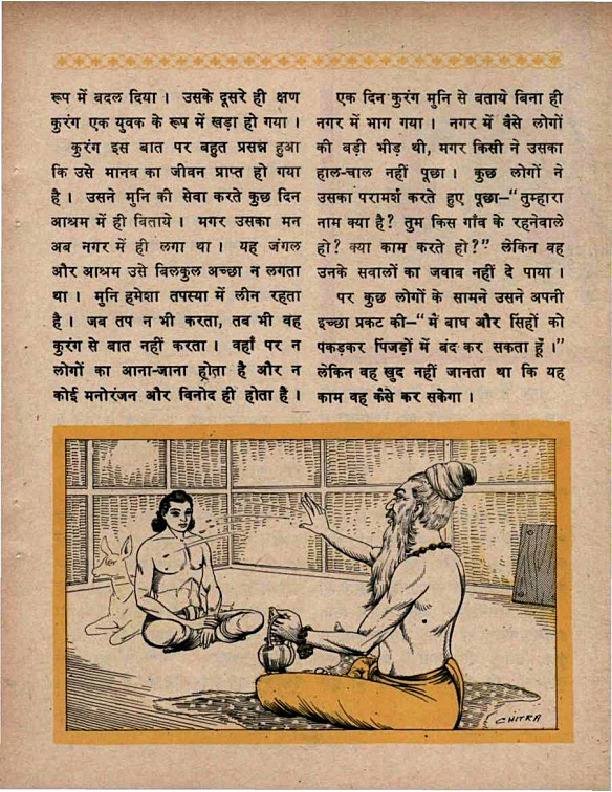 रूप में बदल दिया । उसके दूसरे ही क्षण
कुरंग एक युवक के रूप में खड़ा हो गया ।
कुरंग इस बात पर बहुत प्रसन्न हुआ
कि उसे मानव का जीवन प्राप्त हो गया
है । उसने मुनि की सेवा करते कुछ दिन
आश्रम में ही बिताये । मगर उसका मन
अब नगर में ही लगा था । यह जंगल
और आश्रम उसे बिलकुल अच्छा न लगता
था । मुनि हमेशा तपस्या में लीन रहता
है । जब तप न भी करता, तब भी वह
कुरंग से बात नहीं करता । वहाँ पर न
लोगों का आना-जाना होता है और न
कोई मनोरंजन और विनोद ही होता है ।
एक दिन कुरंग मुनि से बताये बिना ही
नगर में भाग गया । नगर में वैसे लोगों
की बड़ी भीड़ थी, मगर किसी ने उसका
हाल-चाल नहीं पूछा । कुछ लोगों ने
उसका परामर्श करते हुए पूछा–“तुम्हारा
नाम क्या है? तुम किस गाँव के रहनेवाले
हो? क्या काम करते हो?” लेकिन वह
उनके सवालों का जवाब नहीं दे पाया ।
पर कुछ लोगों के सामने उसने अपनी
इच्छा प्रकट की–“में बाघ और सिंहों को
पकड़कर पिंजड़ों में बंद कर सकता हूँ ।”
लेकिन वह खुद नहीं जानता था कि यह
काम वह कैसे कर सकेगा ।
CHITRA